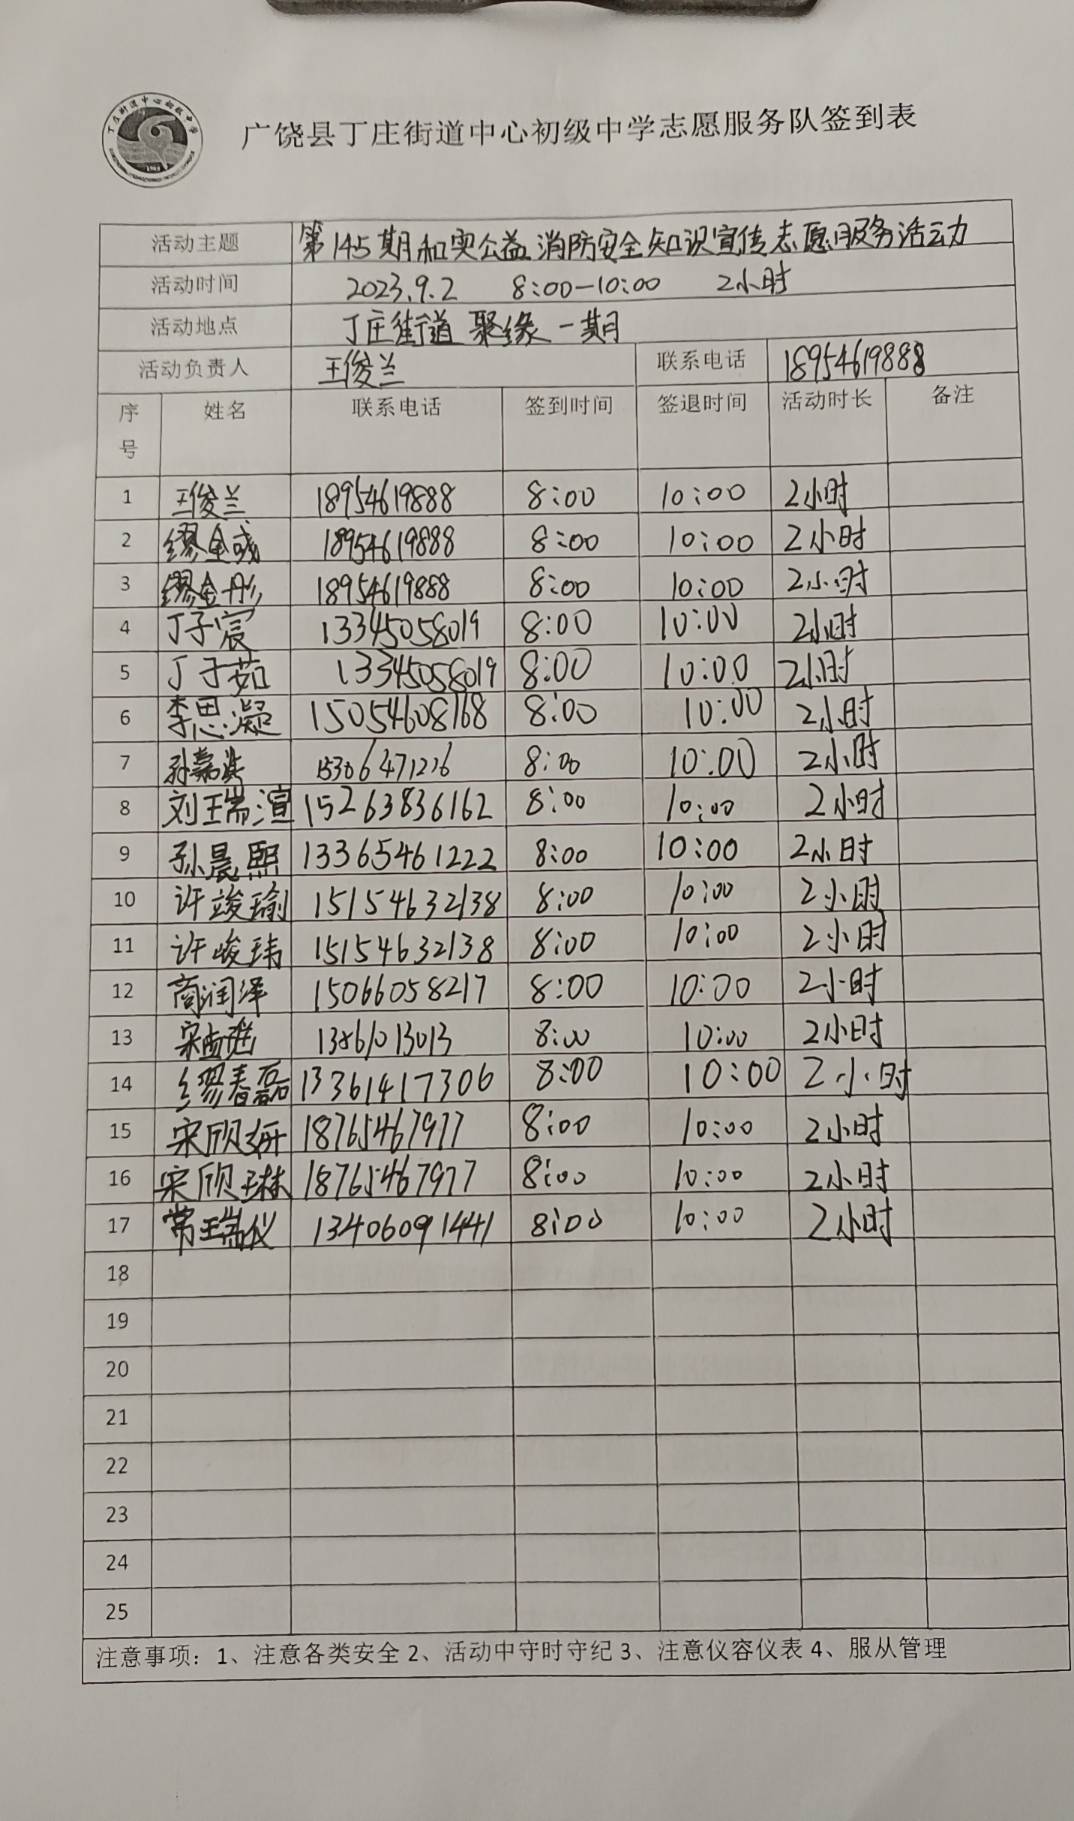 广饶县丁庄街道中心初级中学志愿服务队签到表
活动主题 第145期和实公益消防安全知识宣传志愿服务活动
活动时间 2023.9.2 8:00-10:00 2小时
活动地点 丁庄街道 聚缘一期
活动负责人 王俊兰 联系电话 18954619888
序号 姓名 联系电话 签到时间 签退时间 活动时长 备注
1 王俊兰 18954619888 8:00 10:00 2小时
2 缪金彧 18954619888 8:00 10:00 2小时
3 缪金彤 18954619888 8:00 10:00 2小时
4 丁子宸 13345058019 8:00 10:00 2小时
5 丁子茹 13345058019 8:00 10:00 2小时
6 李思凝 15054608168 8:00 10:00 2小时
7 孙嘉 15306471226 8:00 10:00 2小时
8 刘瑞渲 15263836162 8:00 10:00 2小时
9 孙晨熙 13365461222 8:00 10:00 2小时
10 许竣瑜 15154632138 8:00 10:00 2小时
11 许峻玮 15154632138 8:00 10:00 2小时
12 商润泽 15066058217 8:00 10:00 2小时
13 宋 13861013013 8:00 10:00 2小时
14 缪春磊 13361417306 8:00 10:00 2小时
15 宋欣妍 18765467977 8:00 10:00 2小时
16 宋欣琳 18765467977 8:00 10:00 2小时
17 常瑞仪 13406091441 8:00 10:00 2小时
18
19
20
21
22
23
24
25
注意事项：1、注意各类安全 2、活动中守时守纪 3、注意仪容仪表 4、服从管理